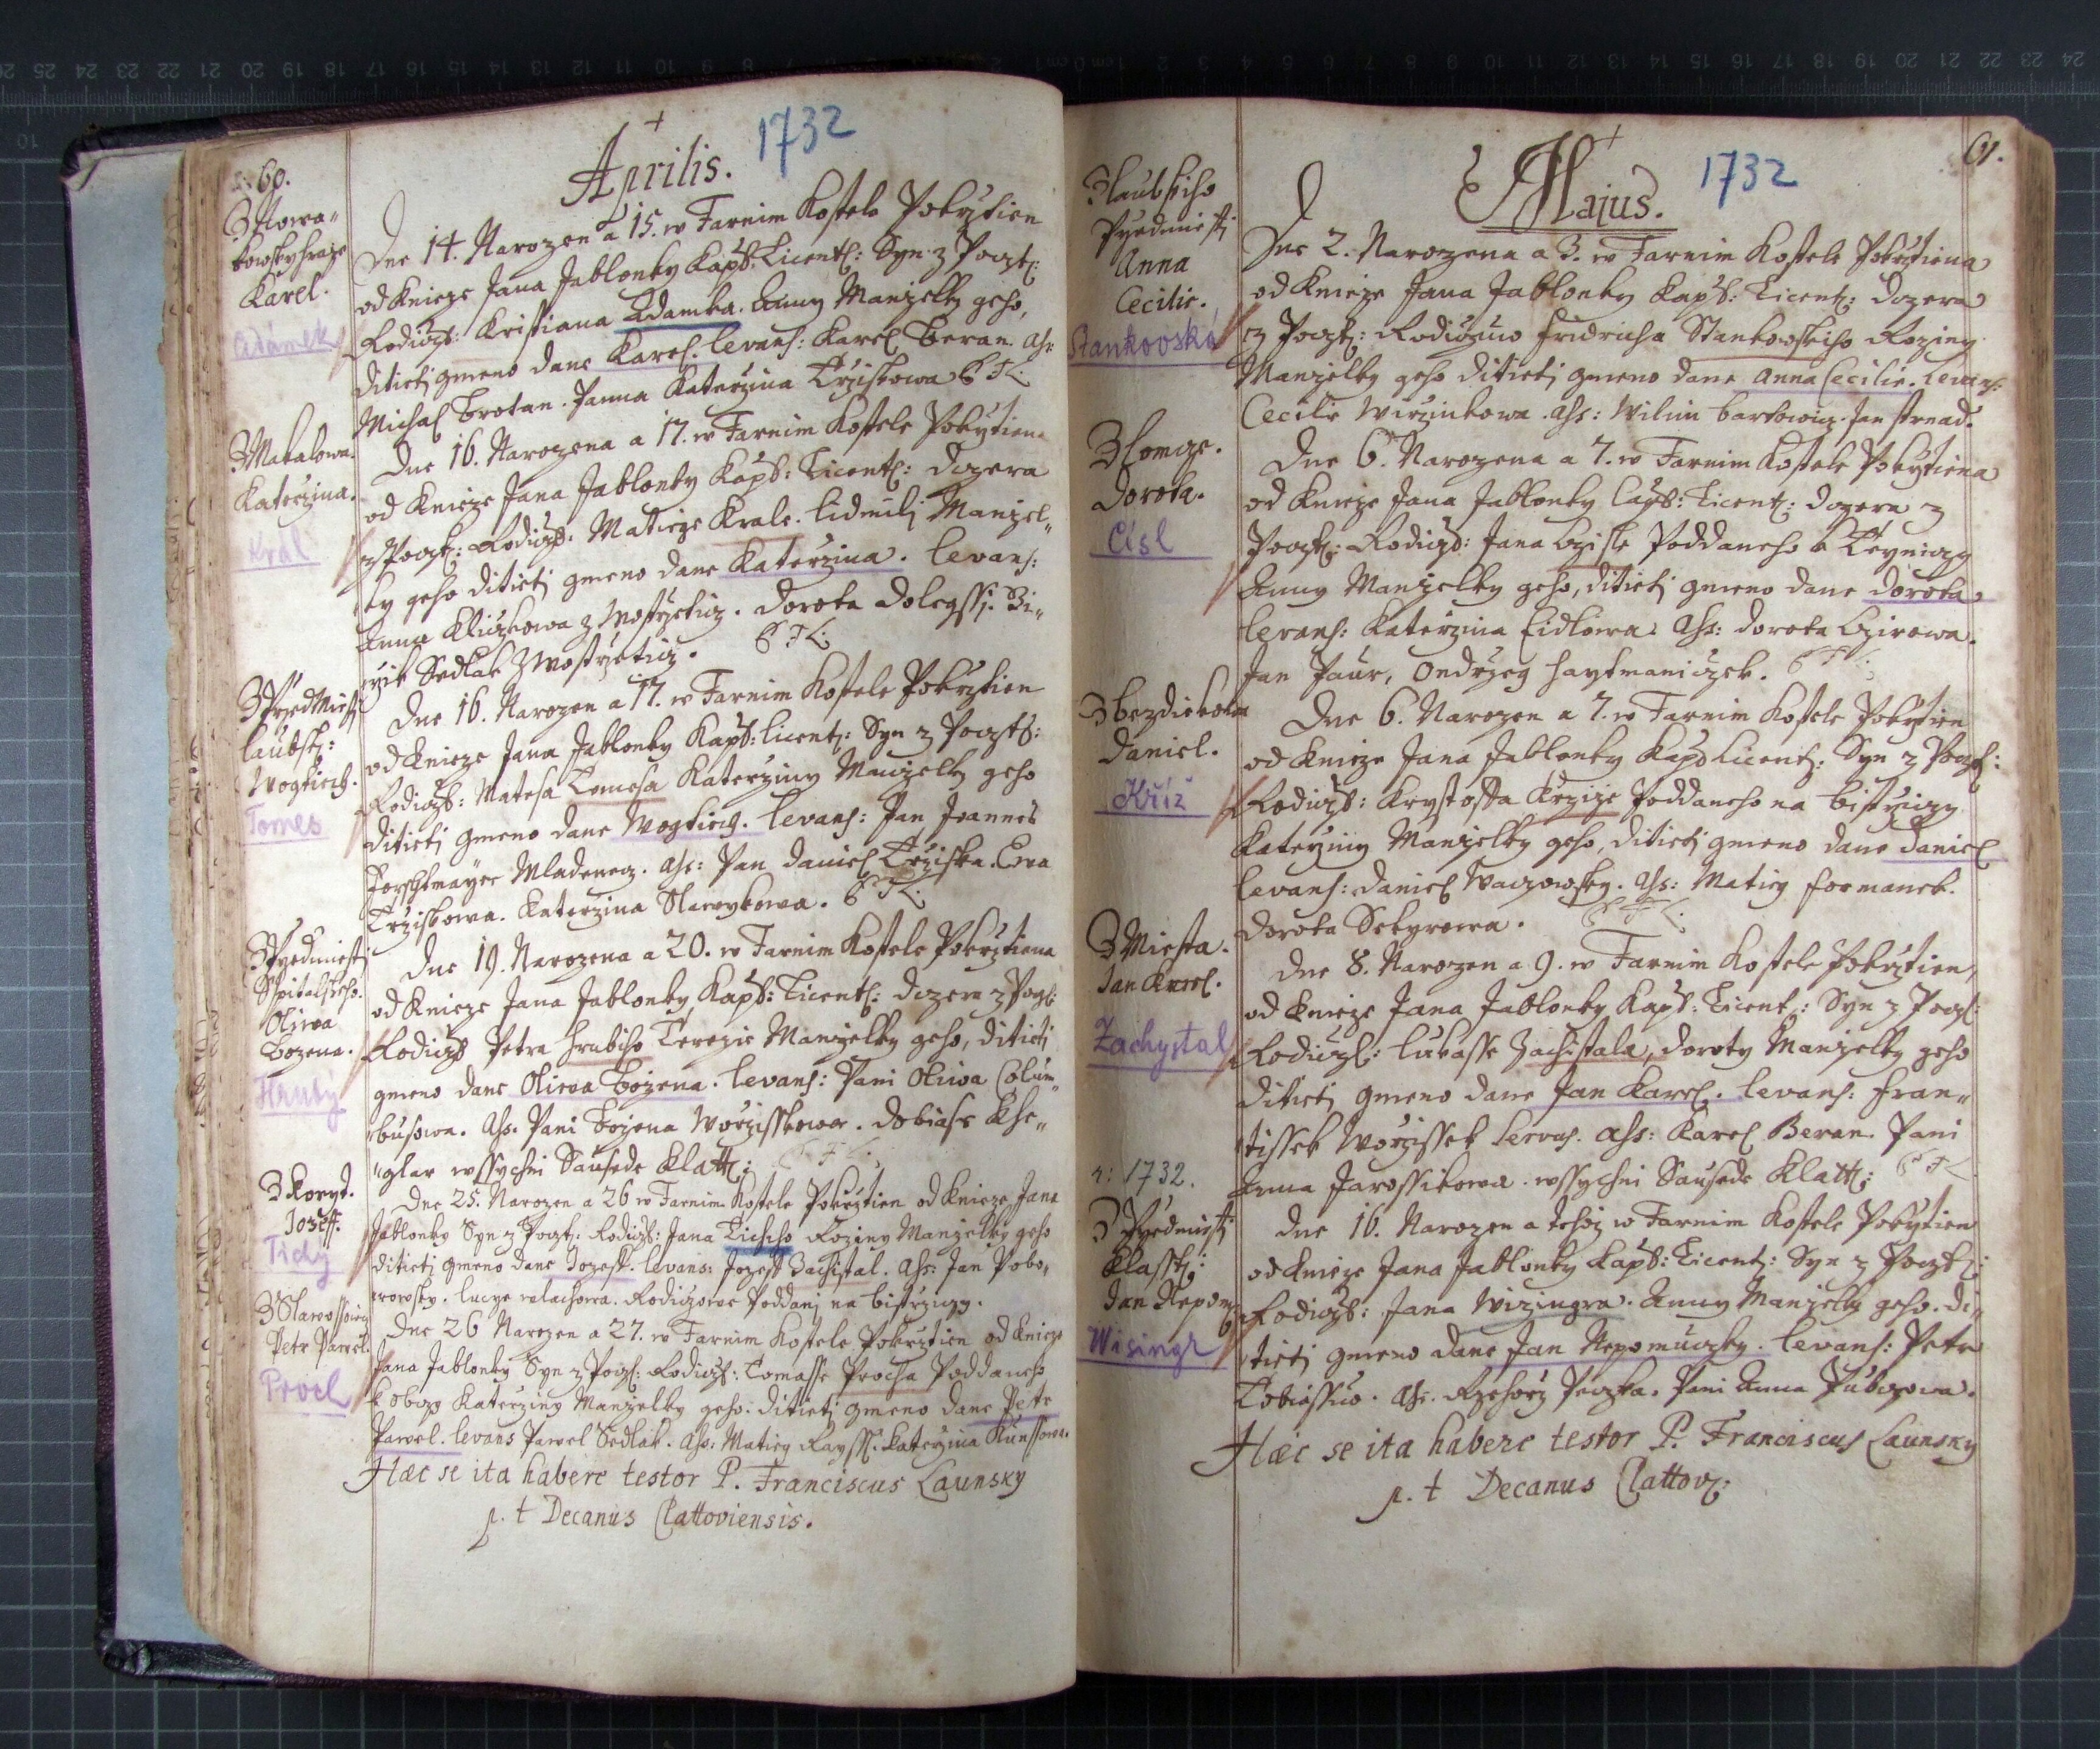 60.
Aprilis.
1732
Z Nowa"
kowskyhraze
Karel.
Adámek
Dne 14. Narozen a 15. w Farnim Kostele Pokrztien
od Knieze Jana Jablonky Kapb: Licent: Syn z Poczt:
Rodiczb: Kristiana Adamka. Anny Manzelky geho,
ditieti gmeno dane Karel. levans: Karel Beran. Ass:
Michal Brotan. Panna Katerzina Trziskowa C.T.L.
Z Makalowa.
Katerzina.
Král
Dne 16. Narozena a 17. w Farnim Kostele Pokrztiena
od Knieze Jana Jablonky Kapb: Licent: dczera
z Poczt: Rodiczb: Matieze Krale. lidmili Manzel"
ky geho ditieti gmeno dane Katerzina. levans:
Anna Kliczkowa z Wostrzeticz. Dorota Dolegssi. Bi"
rzik Sedlak z Wostrzeticz. C.T.L:
Z Przed Miesti
laubsk:
Wogtiech.
Tomes
Dne 16. Narozen a 17. w Farnim Kostele Pokrztien
od Knieze Jana Jablonky Kapb: licent: Syn z Poczt:
Rodiczb: Matesa Tomesa Katerziny Manzelky geho
ditieti gmeno dane Wogtiech. levans: Jan Joannes
Forschtmayer Mladenecz. Ass: Pan Daniel Trziska. Ewa
Trziskowa. Katerzina Slawykowa. C.T.L.
Z Przedmiesti
Spitalskeho.
Oliwa
Bozena.
Hrubý
Dne 19. Narozena a 20. w Farnim Kostele Pokrztiena
od Knieze Jana Jablonky Kapb: Licent: dczera z Pocz:
Rodiczb Petra Hrubiho Terezie Manzelky geho, ditieti
gmeno dane Oliwa Bozena. levans: Pani Oliwa Colum"
busowa. Ass. Pani Bozena Worzisskowa. Dobiass Khe"
"glar wssychni Sausede Klatt: C.T.L:
Z Koryt.
Jozeff.
Tichý
Dne 25. Narozen a 26 w Farnim Kostele Pokrztien od Knieze Jana
Jablonky Syn z Poczt. Rodiczb: Jana Tichiho Roziny Manzelky geho
ditieti gmeno dane Jozeff. levans: Jozeff Zachistal. Ass: Jan Pobo"
rowsky. Lucye walachowa. Rodiczowe Poddani na bistrziczy.
Petr Pawel.
Procl
Dne 26 Narozen a 27. w Farnim Kostele Pokrztien od Knieze
Jana Jablonky Syn z Pocz: Rodiczb: Tomasse Procha Poddaneho
k obczy Katerziny Manzelky geho. ditieti gmeno dane Petr
Pawel. levans Pawel Sedlak. Ass: Matiey Kayss. Katerzina Kunssowa.
Hæc se ita habere testor P. Franciscus Launsky
p. t Decanus Clattoviensis.
61.
Majus.
1732
Z laubskiho
Przedmiesti
Anna
Cecilie.
Stankovská
Dne 2. Narozena a 3. w Farnim Kostele Pokrztiena
od Knieze Jana Jablonky Kapb: Licent: dczera
z Poczt: Rodiczuw Fridricha Stankowskiho Roziny
Manzelky geho ditieti gmeno dane Anna Cecilie. Levans:
Cecilie Wirzinkowa. Ass: Wilim bartowicz. Jan strnad.
Z lomcze.
Dorota.
Císl
Dne 6. Narozena a 7. w Farnim Kostele Pokrztiena
od Knieze Jana Jablonky Capb: Licent: dczera z
Poczt: Rodiczb: Jana Czisle Poddaneho k Teyniczy
Anny Manzelky geho, ditieti gmeno dane Dorota
levans: Katerzina Eidlowa. Ass: Dorota Czirowa.
Jan Paur, Ondrzeg haytmaniczek. C.T.L:
Z bezdiekowa
Daniel.
Kříž
Dne 6. Narozen a 7. w Farnim Kostele Pokrztien
od Knieze Jana Jablonky Kapb Licent: Syn z Poczt:
Rodiczb: Krystoffa Krzize Poddaneho na bistrziczy
Katerziny Manzelky geho, ditieti gmeno dane Daniel
levans: Daniel Waczowsky. Ass: Matiey formanek.
Dorota Sekyrowa. C.T.L:
Z Miesta.
Jan Karel.
Zachystal
Dne 8. Narozen a 9. w Farnim Kostele Pokrztien,
od Knieze Jana Jablonky Kapb: Licent: Syn z Pocz:
Rodiczb: Lukasse Zachistala, Doroty Manzelky geho
ditieti gmeno dane Jan Karel. levans: Fran"
tissek Worzissek levans. Ass: Karel Beran. Pani
Anna Jarossikowa. wssychni Sausede Klatt: C.T.L
A: 1732.
Z Przedmiesti
Klasst:
Jan Nepom:
Wisingr
Dne 16. Narozen a tehoz w Farnim Kostele Pokrztien
od Knieze Jana Jablonky Kapb: Licent: Syn z Poczt:
Rodiczb: Jana Wizingra. Anny Manzelky geho. di"
tieti gmeno dane Jan Nepomuczky. levans: Petr
Tobiassuw. Ass. Rzehorz Peczka. Pani Anna Pubczowa.
Hæc se ita habere testor P. Franciscus Launsky
p. t Decanus Clattov: